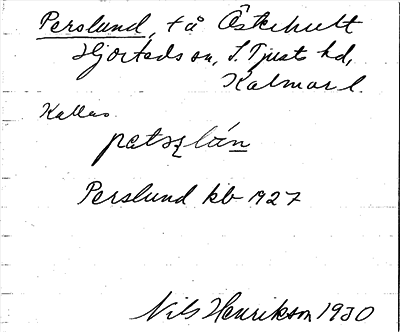 Perslund, t å Österhult
Hjorteds sn, S. Tjusts hd,
Kalmar l.
Kallas
Perslund kb 1927
Nils Henrikson 1930